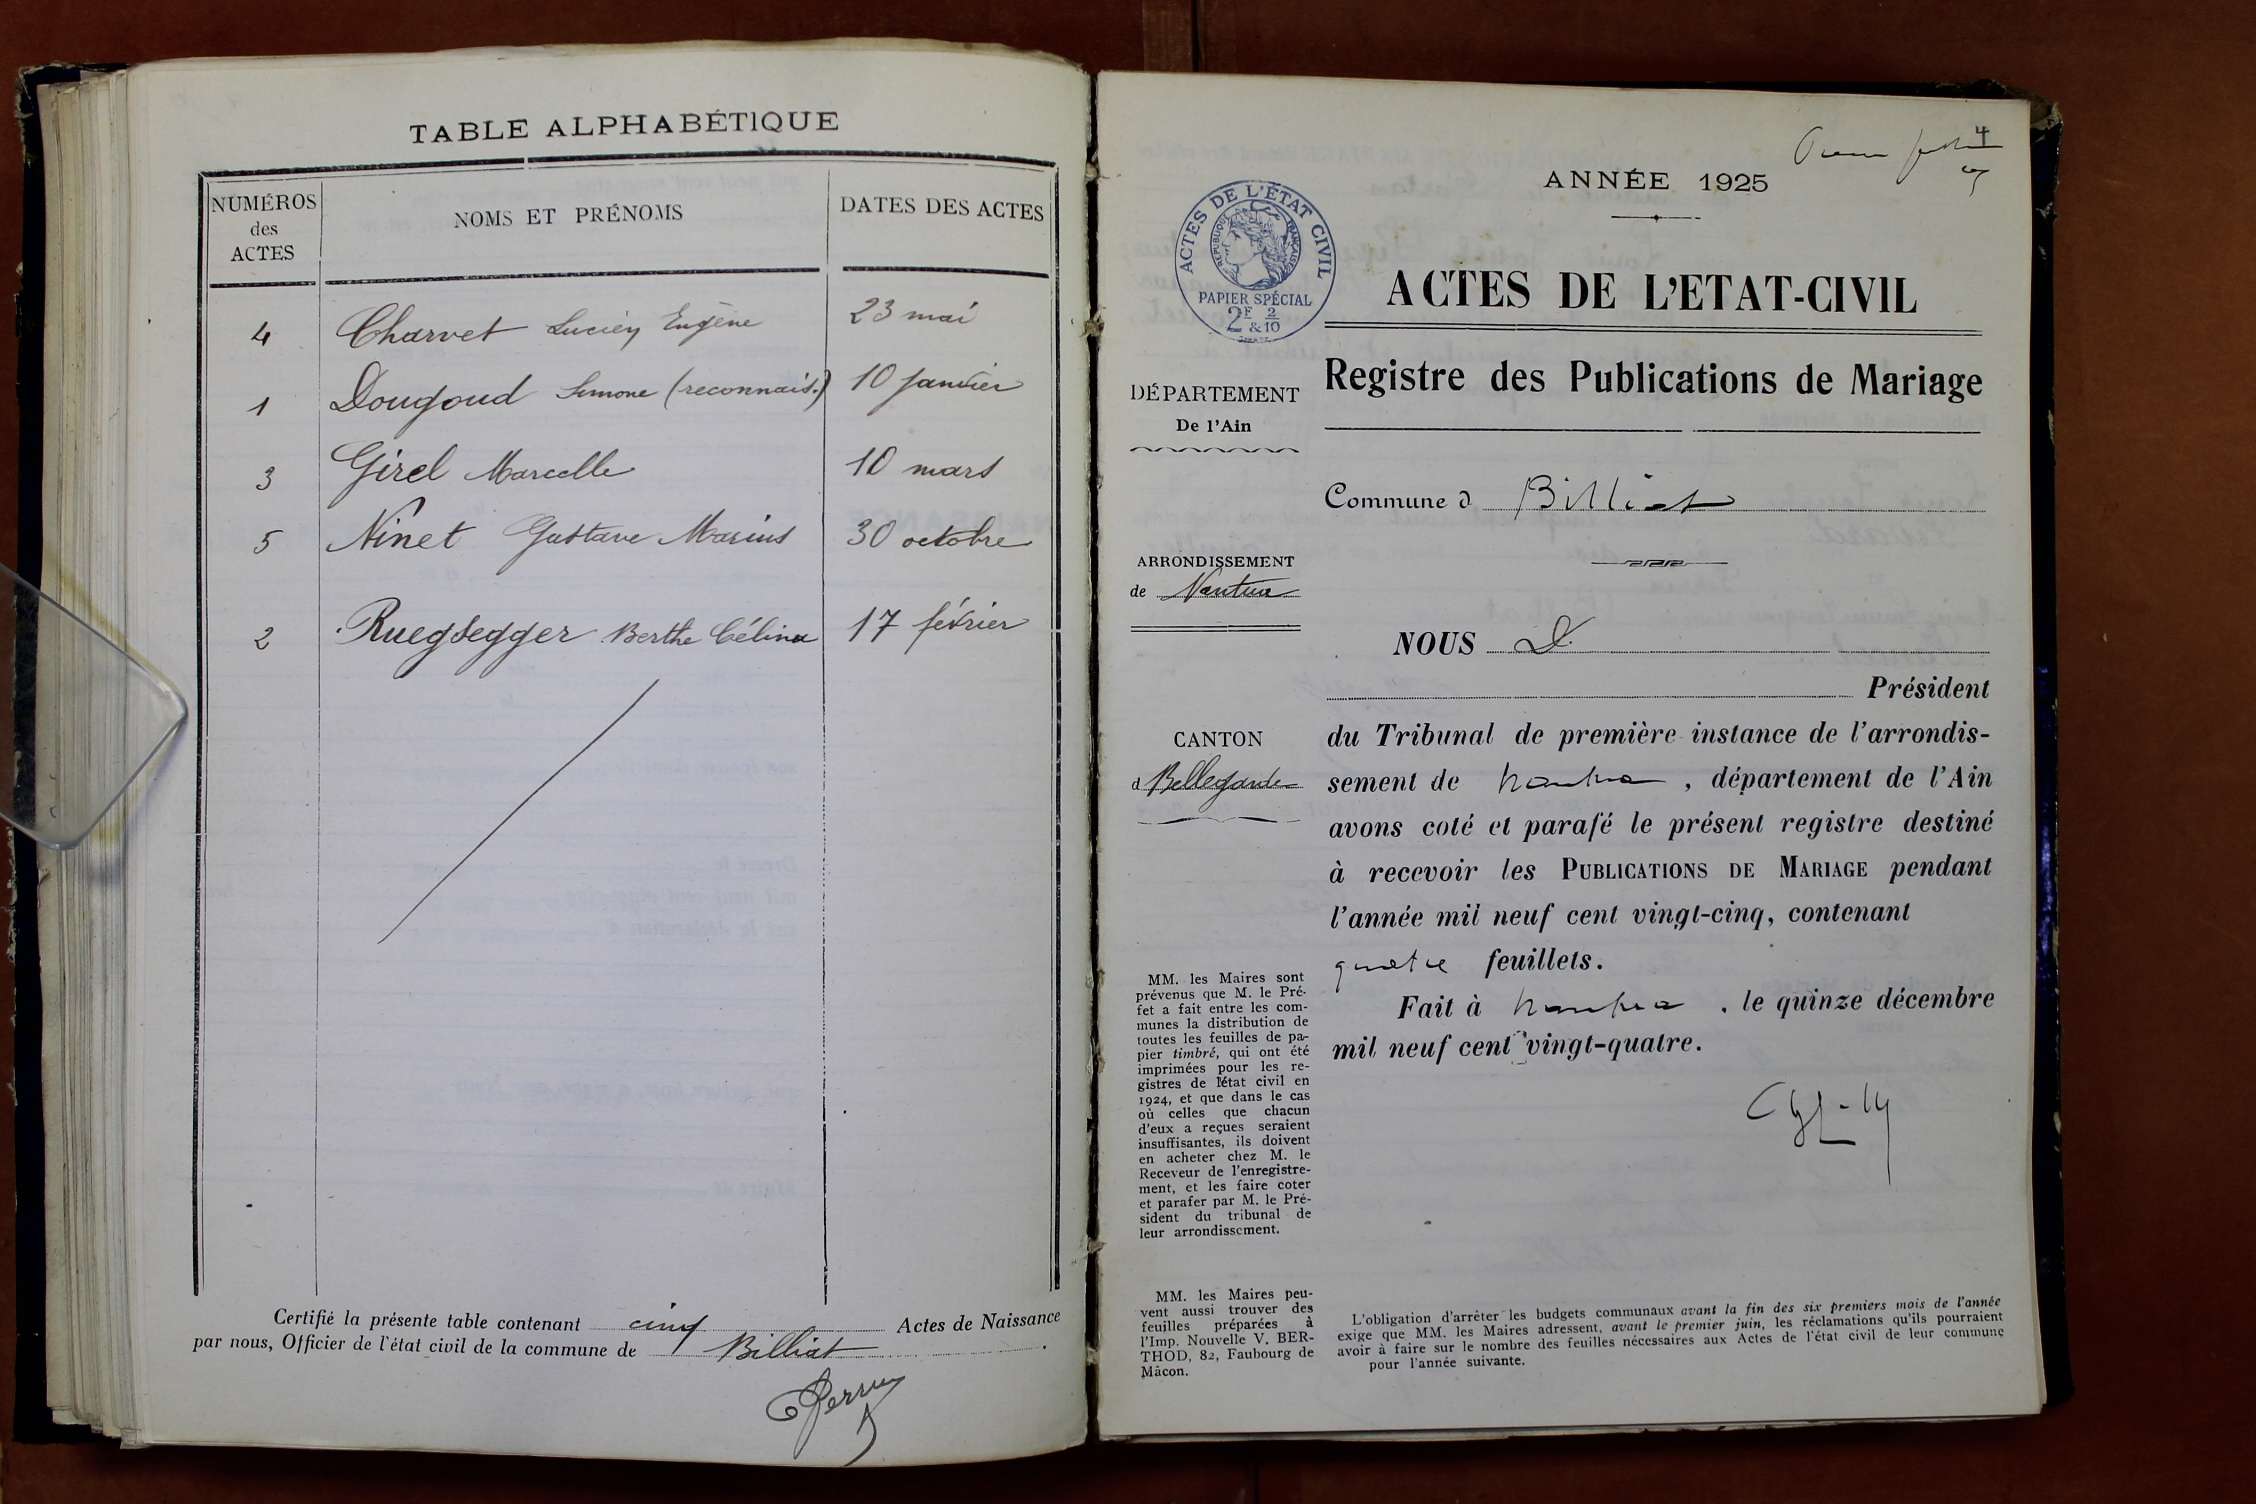 TABLE ALPHABÉTIQUE
NUMÉROS
des
ACTES
NOMS ET PRÉNOMS
DATES DES ACTES
4 Charvet Lucien Eugène 23 mai
1 Dougoud Simone (reconnais.) 10 janvier
3 Girel Marcelle 10 mars
5 Ninet Gustave Marius 30 octobre
2 Ruegsegger Berthe Célina 17 février
Certifié la présente table contenant cinq Actes de Naissance
par nous, Officier de l'état civil de la commune de Billiat
4
ANNÉE 1925
ACTES DE L'ÉTAT CIVIL
RÉPUBLIQUE FRANÇAISE
PAPIER SPÉCIAL
2F & 2/10
ACTES DE L'ETAT-CIVIL
Registre des Publications de Mariage
DÉPARTEMENT
De l'Ain
Commune d Billiat
ARRONDISSEMENT
de Nantua
NOUS
Président
CANTON
d Bellegarde
du Tribunal de première instance de l'arrondis-
sement de Nantua, département de l'Ain
avons coté et parafé le présent registre destiné
à recevoir les PUBLICATIONS DE MARIAGE pendant
l'année mil neuf cent vingt-cinq, contenant
quatre feuillets.
Fait à Nantua, le quinze décembre
mil neuf cent vingt-quatre.
MM. les Maires sont
prévenus que M. le Pré-
fet a fait entre les com-
munes la distribution de
toutes les feuilles de pa-
pier timbré, qui ont été
imprimées pour les re-
gistres de l'état civil en
1924, et que dans le cas
où celles que chacun
d'eux a reçues seraient
insuffisantes, ils doivent
en acheter chez M. le
Receveur de l'enregistre-
ment, et les faire coter
et parafer par M. le Pré-
sident du tribunal de
leur arrondissement.
MM. les Maires peu-
vent aussi trouver des
feuilles préparées à
l'Imp. Nouvelle V. BER-
THOD, 82, Faubourg de
Mâcon.
L'obligation d'arrêter les budgets communaux avant la fin des six premiers mois de l'année
exige que MM. les Maires adressent, avant le premier juin, les réclamations qu'ils pourraient
avoir à faire sur le nombre des feuilles nécessaires aux Actes de l'état civil de leur commune
pour l'année suivante.